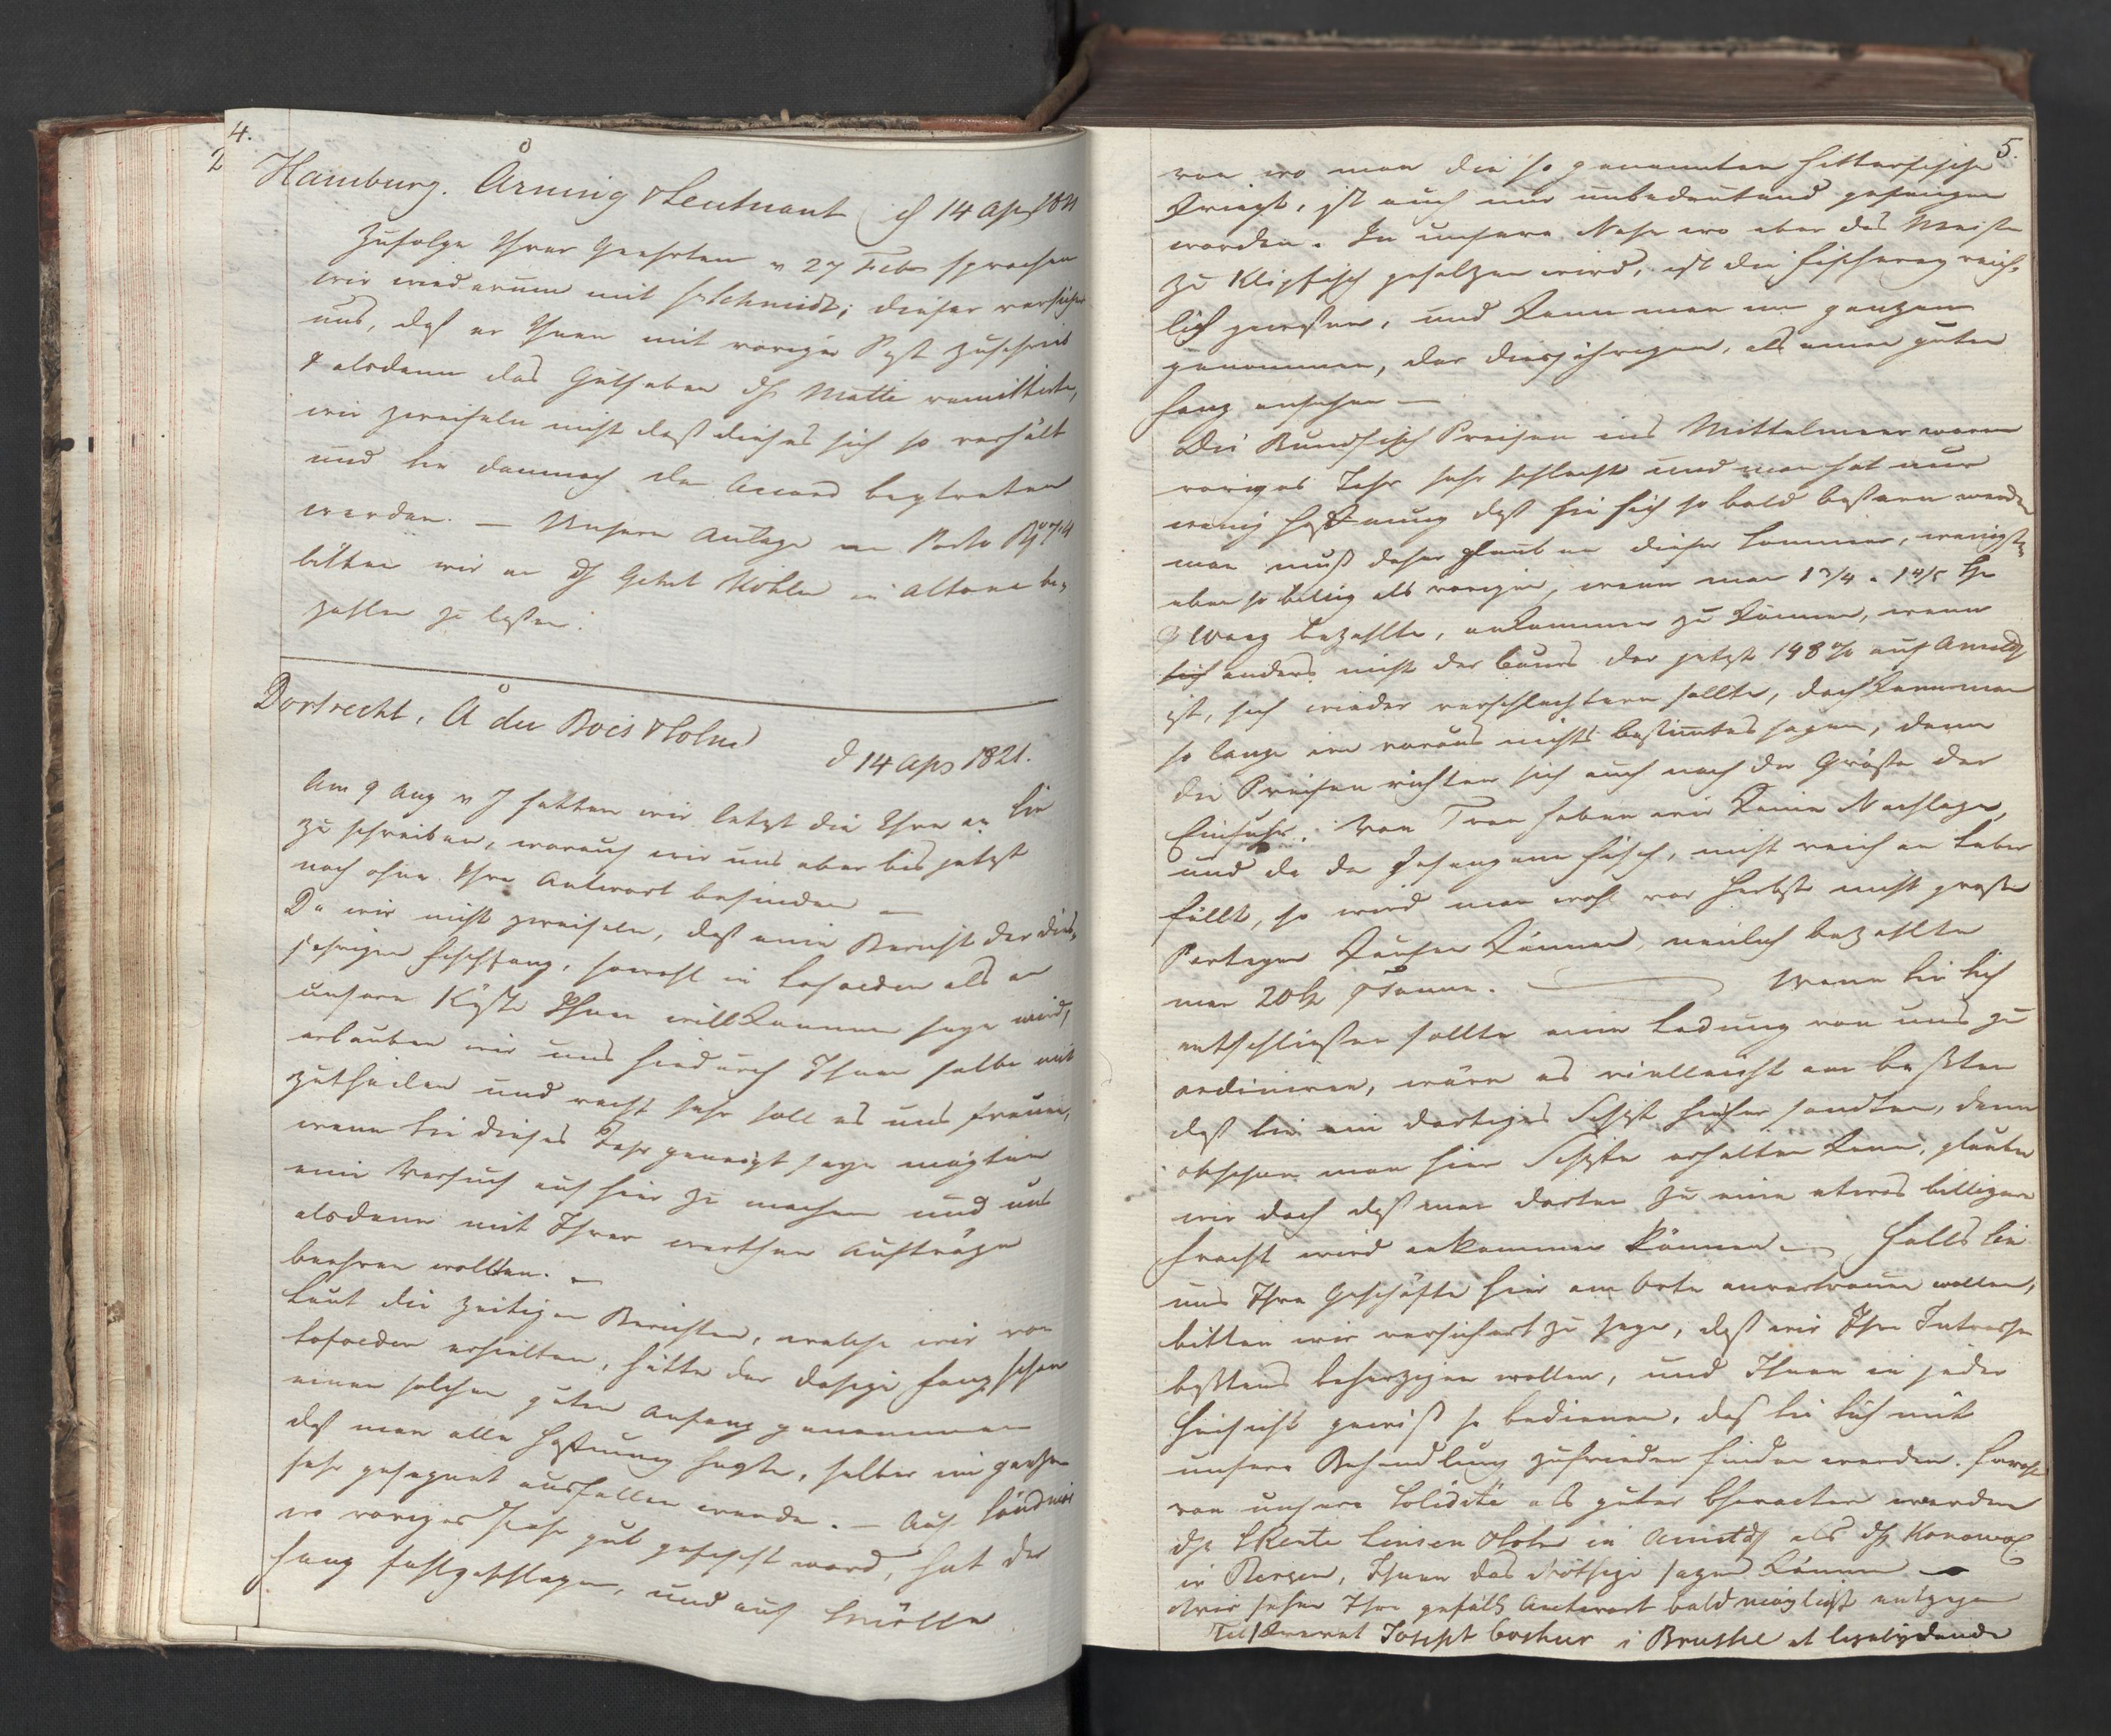 4.
2
Hamburg. Å Arning & Leutnant d 14 Apr 1821
Zufolge Ihrer Geehrten v 27 Febr sprachen
wir wiederum mit H Schmidt; dieser versichert
uns, daß er Ihnen mit voriger Post zuschrieb
& alsdann das Guthaben d H Matti remittirte,
wir zweifeln nicht daß dieses sich so verhält
und Sie demnach den Accord beytreten
werden. — Unsere Auslage an Porto
bitten wir an H Gebrt Kohler in Altona be-
zahlen zu lassen.
Dortrecht, Å du Bois & Sohn
d 14 Apr 1821.
Am 9 Aug v J hatten wir letzt die Ehre an Sie
zu schreiben, worauf wir uns aber bis jetzt
noch ohne Ihre Antwort befinden —
Da wir nicht zweifeln, daß ein Bericht der dies-
jährigen Fischfang, sowohl in Lofoden als an
unsere Küste Ihnen willkommen seyn wird,
erlauben wir uns hiedurch Ihnen selbe mit
zutheilen und recht sehr soll es uns freuen,
wenn Sie dieses Jahr geneigt seyn mögten
ein Versuch auf hier zu machen und uns
alsdann mit Ihrer werthen Aufträge
beehren wollten. —
Laut die zeitigen Berichten, welche wir von
Lofoden erhielten, hätte der dasige Fang schon
einen solchen guten Anfang genommen
daß man alle Hoffnung hegte, selber im ganzen
sehr gesegnet ausfallen werde. — Auf Söndmör
wo voriges Jahr gut gefischt ward, hat der
Fang fehlgeschlagen, und auf Smölle
5.
von wo man die so genannten Hitterfische
kriegt, ist auch nur unbedeutend gefangen
worden. In unsere Nähe wo aber das Meiste
zu Klipfisch gesalzen wird, ist die Fischerey reich-
lich gewesen, und kann man im ganzen
genommen, der diesjährigen, als einen guten
Fang ansehen —
Die Rundfisch Preisen ins Mittelmeer waren
voriges Jahr sehr schlecht und man hat nur
wenig Hoffnung daß sie sich so bald bessern werden
man muß daher glaub an diesen Sommer, wenigstens
eben so billig als voriger, wenn man 1 3/4 a 1 4/5 Sp
p Waag bezahlte, ankommen zu können, wenn
sich anders nicht der Cours der jetzt 148 % auf Amstd
ist, sich wieder verschlechtern sollte, doch kann man
so lange im voraus nichts bestimtes sagen, denn
die Preisen richten sich auch nach die Größe der
Einfuhr. Von Tran haben wir keine Nachlage,
und da der gefangene Fisch, nicht reich an Leber
fällt, so wird man wohl vor Herbste nicht große
Parteyen kaufen können, neulich bezahlte
man 20 Sp p Tonne. — Wenn Sie Sich
entschließen sollte eine Ladung von uns zu
ordiniren, wäre es vielleicht am beßten
daß Sie ein dortiges Schiff hieher sandten, denn
obschon man hier Schiffe erhalten kann, glauben
wir doch daß man dorten zu eine etwas billigere
Fracht wird ankommen können — Falls Sie
uns Ihre Geschäfte hier am Orte anvertrauen wollen,
bitten wir versichert zu seyn, daß wir Ihre Intresse
beßtens beherzigen wollen, und Ihnen in jeder
Hinsicht gewiß so bedienen, daß Sie Sich mit
unsere Behandlung zufrieden finden werden. Sowohl
von unsere Solidité als guter Character werden
d H Kente Linsen & Sohn in Amstd als d H Konow & C
in Bergen, Ihnen das Nöthige sagen können —
Wir sehen Ihre gefäll Antwort bald möglichst entgegen
Joseph i Brussel et ligelydende